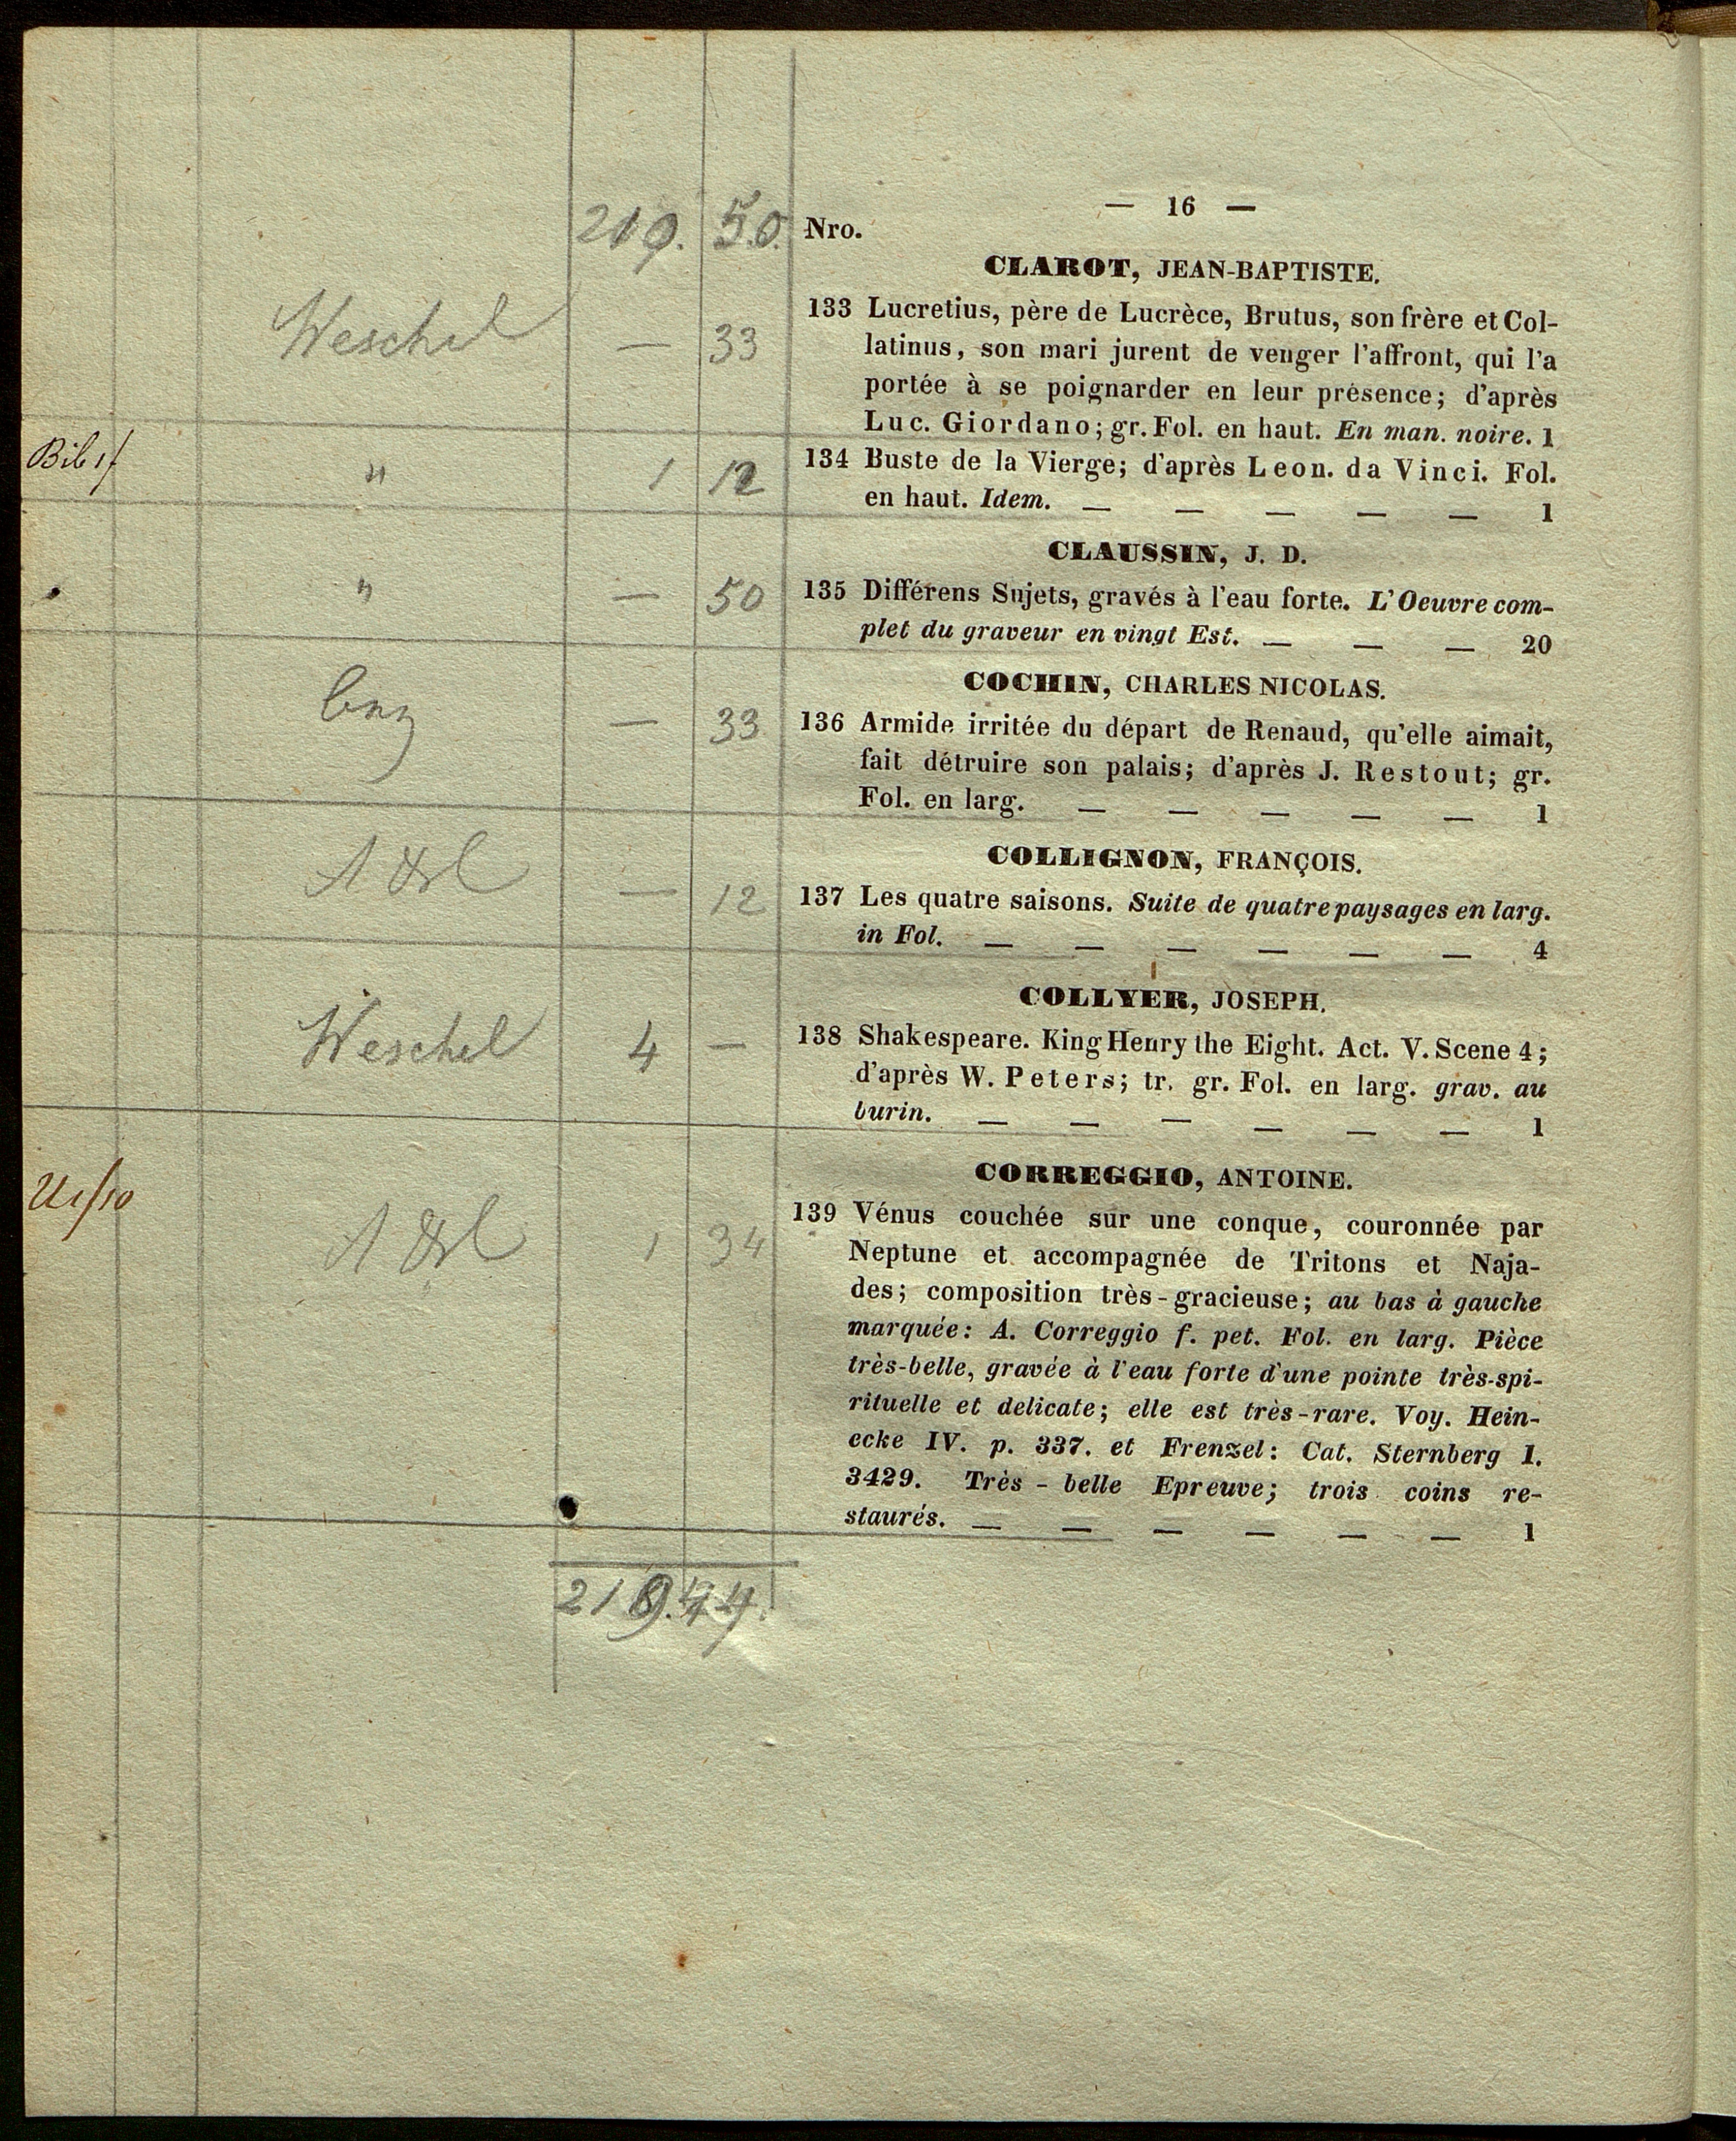 — 16 —
210. 50. Nro.
CLAROT, JEAN-BAPTISTE.
Weschel — 33
133 Lucretius, père de Lucrèce, Brutus, son frère et Col-
latinus, son mari jurent de venger l'affront, qui l'a
portée à se poignarder en leur présence; d'après
Luc. Giordano; gr. Fol. en haut. En man. noire. 1
" 1 12
134 Buste de la Vierge; d'après Leon. da Vinci. Fol.
en haut. Idem. — — — — — 1
CLAUSSIN, J. D.
" — 50
135 Différens Sujets, gravés à l'eau forte. L'Oeuvre com-
plet du graveur en vingt Est. — — — 20
COCHIN, CHARLES NICOLAS.
— 33
136 Armide irritée du départ de Renaud, qu'elle aimait,
fait détruire son palais; d'après J. Restout; gr.
Fol. en larg. — — — — — 1
COLLIGNON, FRANÇOIS.
— 12
137 Les quatre saisons. Suite de quatre paysages en larg.
in Fol. — — — — — — 4
COLLYER, JOSEPH.
Weschel 4 —
138 Shakespeare. King Henry the Eight. Act. V. Scene 4;
d'après W. Peters; tr. gr. Fol. en larg. grav. au
burin. — — — — — — 1
CORREGGIO, ANTOINE.
1 34
139 Vénus couchée sur une conque, couronnée par
Neptune et accompagnée de Tritons et Naja-
des; composition très-gracieuse; au bas à gauche
marquée: A. Correggio f. pet. Fol. en larg. Pièce
très-belle, gravée à l'eau forte d'une pointe très-spi-
rituelle et delicate; elle est très-rare. Voy. Hein-
ecke IV. p. 337. et Frenzel: Cat. Sternberg I.
3429. Très-belle Epreuve; trois coins re-
staurés. — — — — — — 1